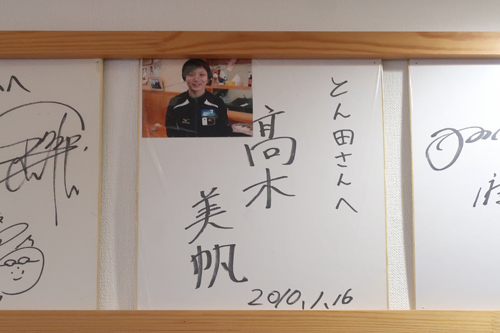 とん田さんへ
髙木
美帆
2010.1.16
へ